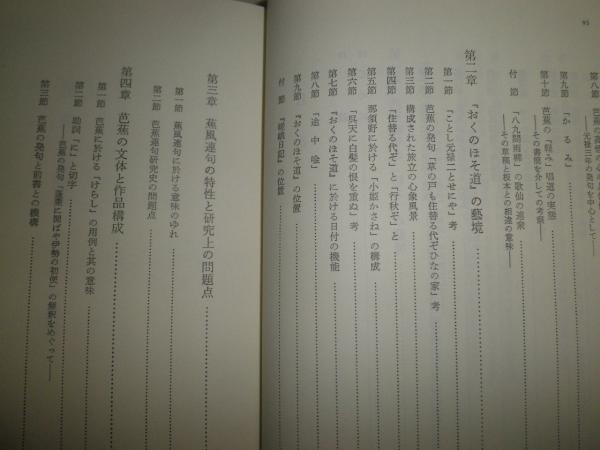 芭蕉の真愁の心境
――元禄三年の発句を中心として――
第九節 「かるみ」
第十節 芭蕉の「軽み」唱道の実態
――その書簡を介しての考察――
付節 「八九間雨柳」の歌仙の連衆
――その草稿と板本との相違の意味――
第二章 『おくのほそ道』の藝境
第一節 「ことし元禄二とせにや」考
第二節 芭蕉の発句「草の戸も住替る代ぞひなの家」考
第三節 構成された旅立の心象風景
第四節 「住替る代ぞ」と「行秋ぞ」と
第五節 那須野に於ける「小姫かさね」の構成
第六節 「呉天に白髪の恨を重ぬ」考
第七節 『おくのほそ道』に於ける日付の機能
第八節 「途中唫」
第九節 『おくのほそ道』の位置
付節 『嵯峨日記』の位置
第三章 蕉風連句の特性と研究上の問題点
第一節 蕉風連句に於ける意味のゆれ
第二節 芭蕉連句研究史の問題点
第四章 芭蕉の文体と作品構成
第一節 芭蕉に於ける「けらし」の用例と其の意味
第二節 助詞「に」と切字
――芭蕉の発句「蓬莱に聞ばや伊勢の初便」の解釈をめぐって――
第三節 芭蕉の発句と前書との機構